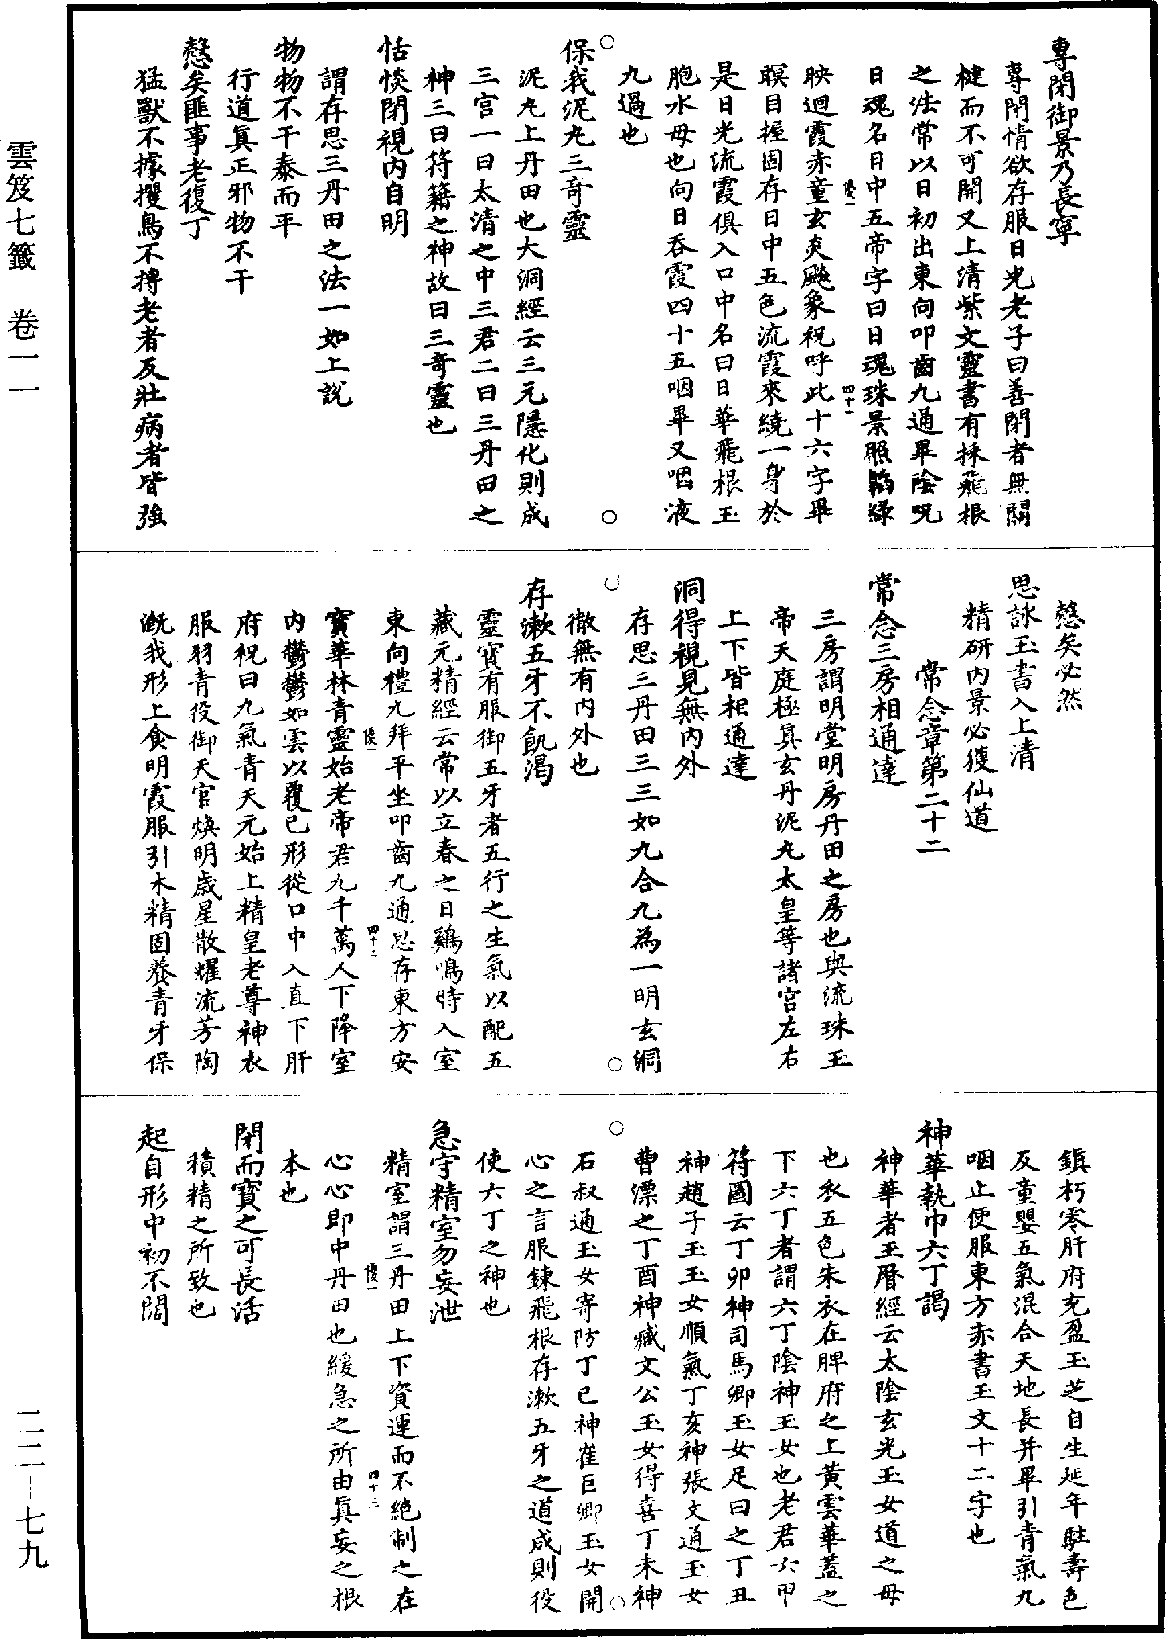 專閉御景乃長寧
專閉情欲存服日光老子曰善閉者無關
楗而不可開又上清紫文靈書有採飛根
之法常以日初出東向叩齒九通畢陰呪
日魂名日中五帝字曰日魂珠景照韜綠
映迴霞赤童玄炎飈象祝呼此十六字畢
瞑目握固存日中五色流霞來繞一身於
是日光流霞俱入口中名曰日華飛根玉
胞水母也向日吞霞四十五咽畢又咽液
九過也
保我泥丸三奇靈
泥丸上丹田也大洞經云三元隱化則成
三宮一曰太清之中三君二曰三丹田之
神三曰符籍之神故曰三奇靈也
恬惔閉視內自明
謂存思三丹田之法一如上說
物物不干泰而平
行道真正邪物不干
慤矣匪事老復丁
猛獸不據攫鳥不摶老者反壯病者皆強
慤矣必然
思詠玉書入上清
精研內景必獲仙道
常念章第二十二
常念三房相通達
三房謂明堂明房丹田之房也與流珠玉
帝天庭極真玄丹泥丸太皇等諸宮左右
上下皆相通達
洞得視見無內外
存思三丹田三三如九合九為一明玄洞
徹無有內外也
存漱五牙不飢渴
靈寶有服御五牙者五行之生氣以配五
藏元精經云常以立春之日鷄鳴時入室
東向禮九拜平坐叩齒九通思存東方安
寶華林青靈始老帝君九千萬人下降室
內鬱鬱如雲以覆己形從口中入直下肝
府祝曰九氣青天元始上精皇老尊神衣
服羽青役御天官煥明歲星散耀流芳陶
溉我形上食明霞服引木精固養青牙保
鎮朽零肝府充盈玉芝自生延年駐壽色
反童嬰五氣混合天地長并畢引青氣九
咽止便服東方赤書玉文十二字也
神華執巾六丁謁
神華者玉曆經云太陰玄光玉女道之母
也衣五色朱衣在脾府之上黃雲華蓋之
下六丁者謂六丁陰神玉女也老君六甲
符圖云丁卯神司馬卿玉女足曰之丁丑
神趙子玉玉女順氣丁亥神張文通玉女
曹漂之丁酉神臧文公玉女得喜丁未神
石叔通玉女寄防丁巳神崔巨卿玉女開
心之言服鍊飛根存漱五牙之道成則役
使六丁之神也
急守精室勿妄泄
精室謂三丹田上下資運而不絕制之在
心心即中丹田也緩急之所由真妄之根
本也
閉而寶之可長活
積精之所致也
起自形中初不闊
雲笈七籤　卷一一
二二－七九